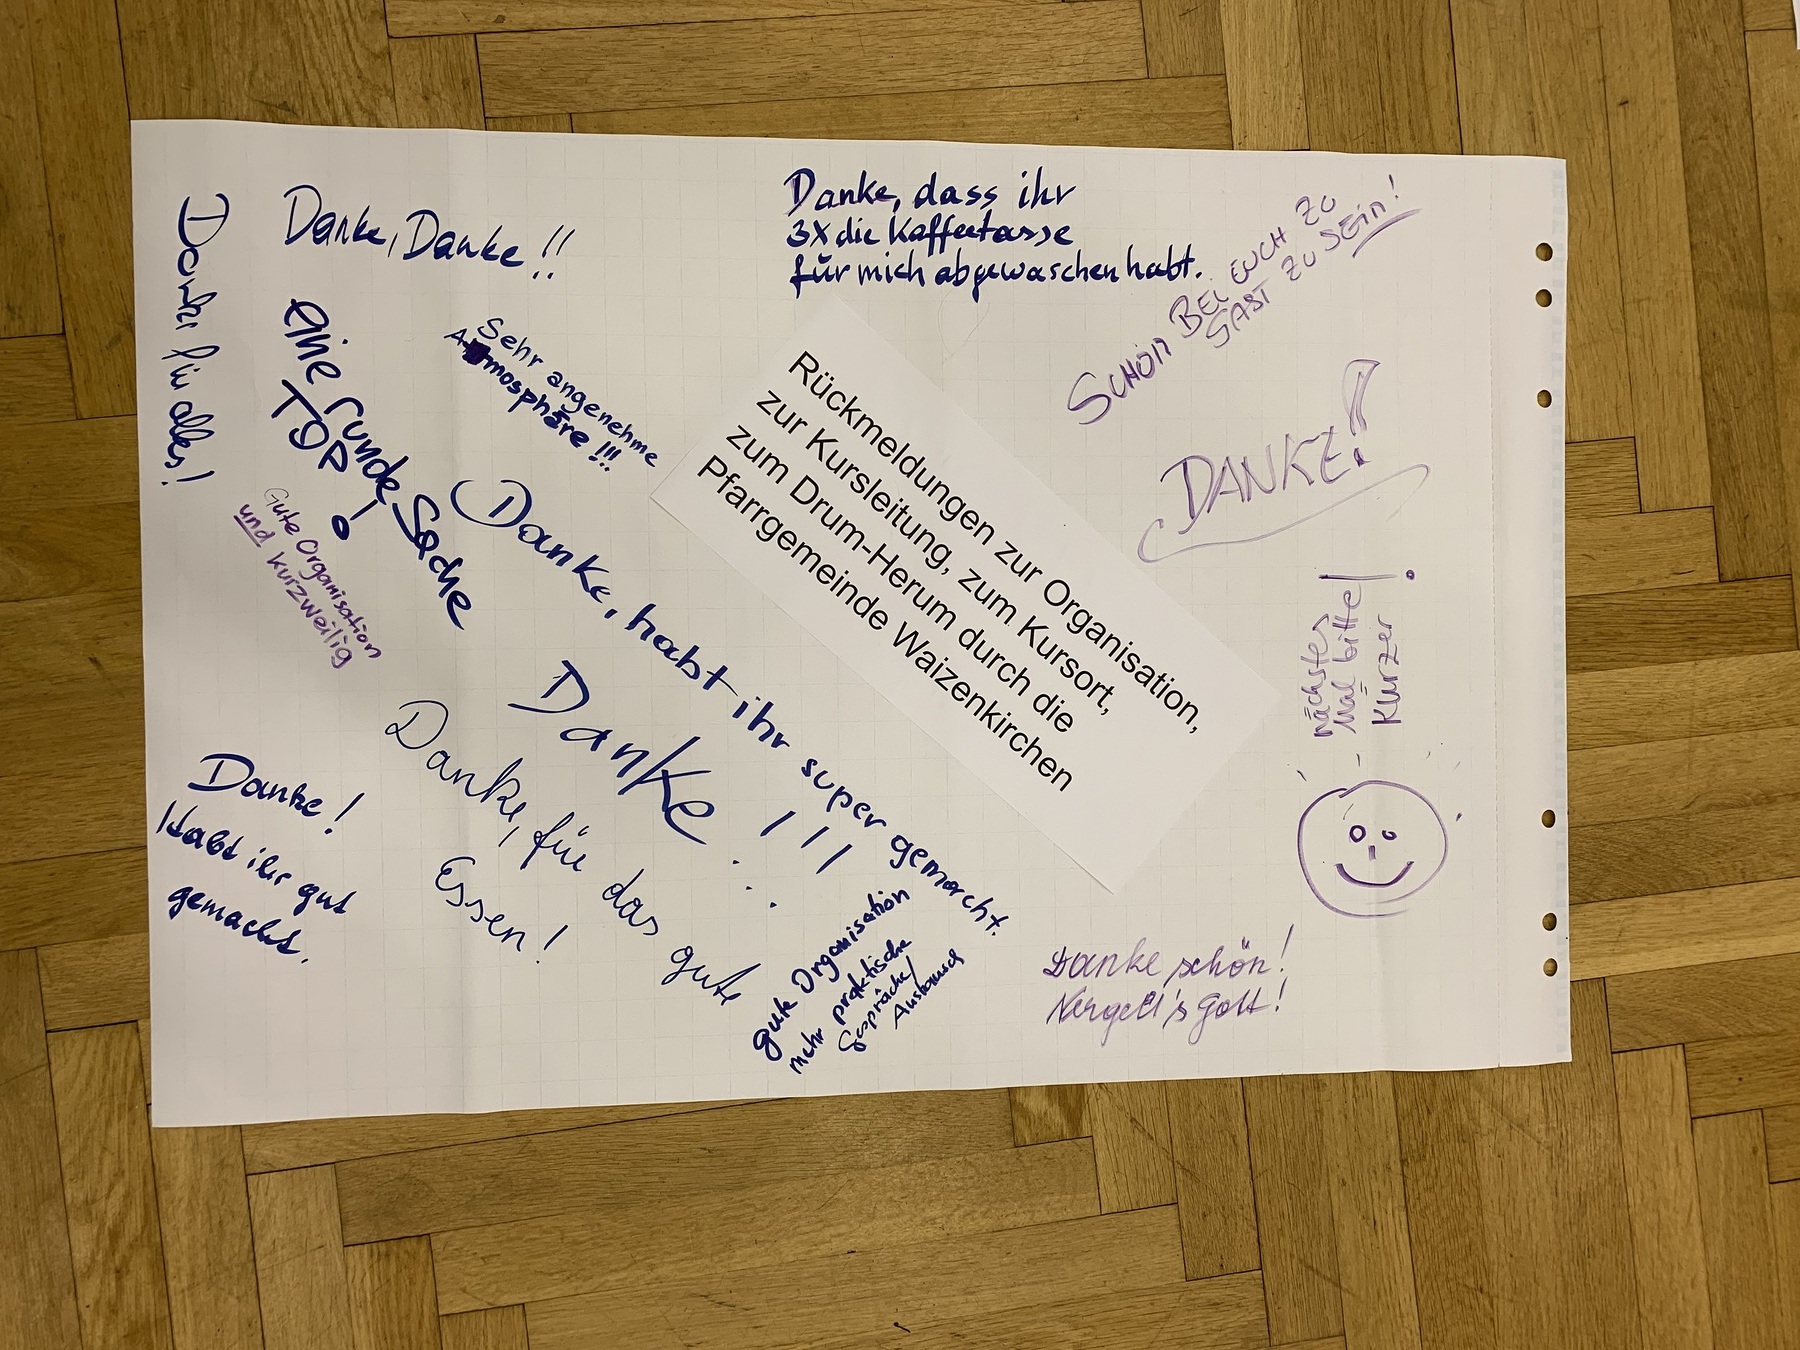 Danke, Danke!!
Danke, dass ihr
3x die Kaffeetasse
für mich abgewaschen habt.
SCHÖN BEI EUCH ZU
GAST ZU SEIN!
Danke für alles!
eine runde Sache
TOP!
Sehr angenehme
Atmosphäre!!!
Rückmeldungen zur Organisation,
zur Kursleitung, zum Kursort,
zum Drum-Herum durch die
Pfarrgemeinde Waizenkirchen
DANKE!
Gute Organisation
und kurzweilig
Danke, habt ihr super gemacht.
nächstes
Mal bitte
kürzer!
Danke!!!
Danke, für das gute
Essen!
Danke!
Habt ihr gut
gemacht.
gute Organisation
mehr praktische
Gespräche/
Austausch
Danke schön!
Vergelt's Gott!